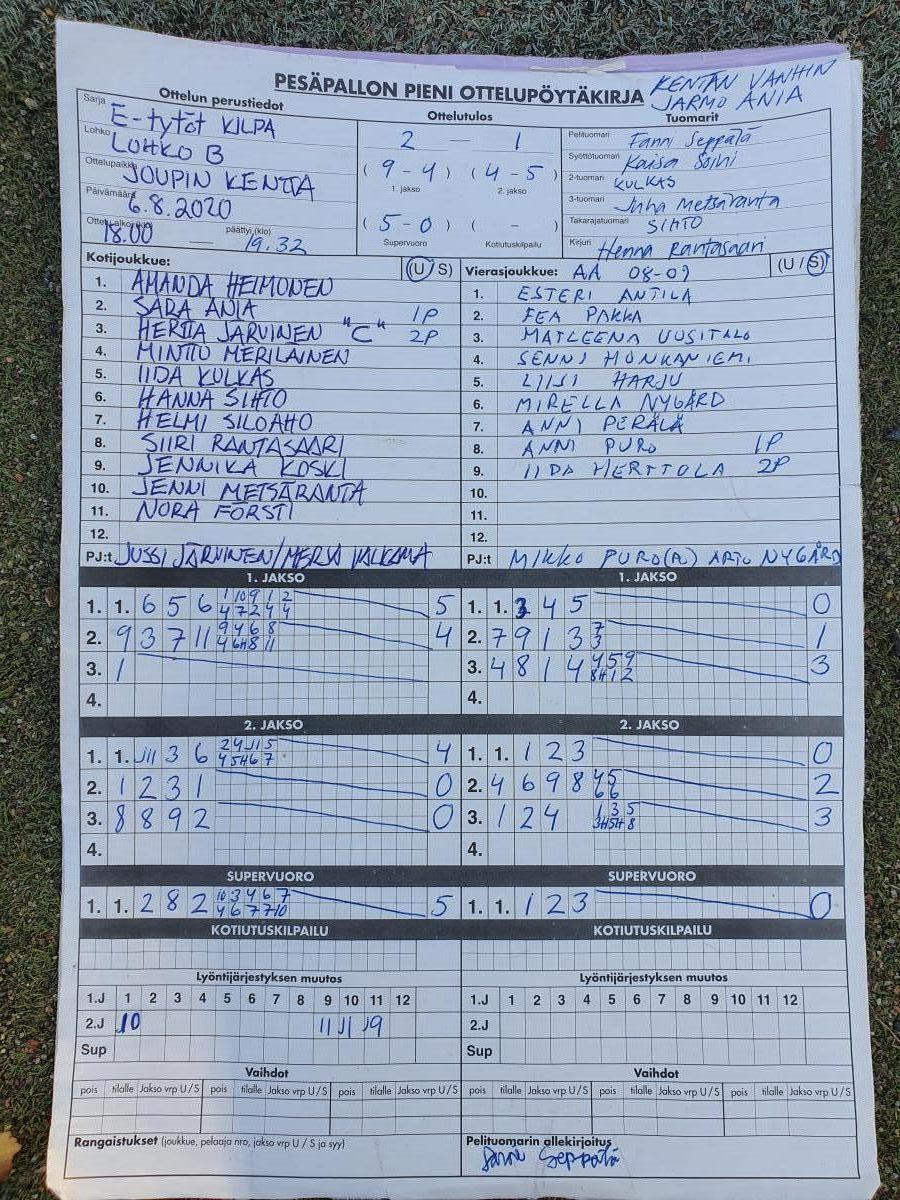 PESÄPALLON PIENI OTTELUPÖYTÄKIRJA
KENTÄN VANHIN
JARMO ANIA
Ottelun perustiedot
Sarja E-tytöt KILPA
Lohko LOHKO B
Ottelupaikka JOUPIN KENTTÄ
Päivämäärä 6.8.2020
Ottelu alkoi (klo) 18.00 — päättyi (klo) 19.32
Ottelutulos
2 — 1
(9 - 4) (4 - 5)
1. jakso 2. jakso
(5 - 0) ( - )
Supervuoro Kotiutuskilpailu
Tuomarit
Pelituomari Fanni Seppätä
Syöttötuomari Kaisa Soini
2-tuomari KULKAS
3-tuomari Juha Metsäranta
Takarajatuomari SIHTO
Kirjuri Henna Rantasaari
Kotijoukkue: (U/S)
1. AMANDA HEIMONEN
2. SARA ANIA 1P
3. HERTTA JÄRVINEN "C" 2P
4. MINTTU MERILÄINEN
5. IIDA KULKAS
6. HANNA SIHTO
7. HELMI SILOAHO
8. SIIRI RANTASAARI
9. JENNIKA KOSKI
10. JENNI METSÄRANTA
11. NORA FÖRSTI
12.
PJ:t JUSSI JÄRVINEN/MERVI
Vierasjoukkue: AA 08-09 (U/S)
1. ESTERI ANTILA
2. EEA PAKKA
3. MATLEENA UUSITALO
4. SENNI HONKANIEMI
5. LIISI HARJU
6. MIRELLA NYGÅRD
7. ANNI PERÄLÄ
8. ANNI PURO 1P
9. IIDA HERTTOLA 2P
10.
11.
12.
PJ:t MIKKO PURO(A) ARTO NYGÅRD
1. JAKSO
1. 1. 6 5 6 1 10 9 1 2 5
4 7 2 4 4
2. 9 3 7 11 9 4 6 8 4
4 6H 8 11
3. 1
4.
1. JAKSO
1. 1. 3 4 5 0
2. 7 9 1 3 7 1
3
3. 4 8 1 4 4 5 9 3
8H 1 2
4.
2. JAKSO
1. 1. J11 3 6 2 4 J11 5 4
4 5H 6 7
2. 1 2 3 1 0
3. 8 8 9 2 0
4.
2. JAKSO
1. 1. 1 2 3 0
2. 4 6 9 8 4 5 2
6 6
3. 1 2 4 1 3 5 3
3H 5H 8
4.
SUPERVUORO
1. 1. 2 8 2 10 3 4 6 7 5
4 6 7 7 10
SUPERVUORO
1. 1. 1 2 3 0
KOTIUTUSKILPAILU
KOTIUTUSKILPAILU
Lyöntijärjestyksen muutos
1.J 1 2 3 4 5 6 7 8 9 10 11 12
2.J J10 11 J11 J9
Sup
Lyöntijärjestyksen muutos
1.J 1 2 3 4 5 6 7 8 9 10 11 12
2.J
Sup
Vaihdot
pois tilalle Jakso vrp U/S pois tilalle Jakso vrp U/S pois tilalle Jakso vrp U/S
Vaihdot
pois tilalle Jakso vrp U/S pois tilalle Jakso vrp U/S pois tilalle Jakso vrp U/S
Rangaistukset (joukkue, pelaaja nro, jakso vrp U / S ja syy)
Pelituomarin allekirjoitus
Seppätä